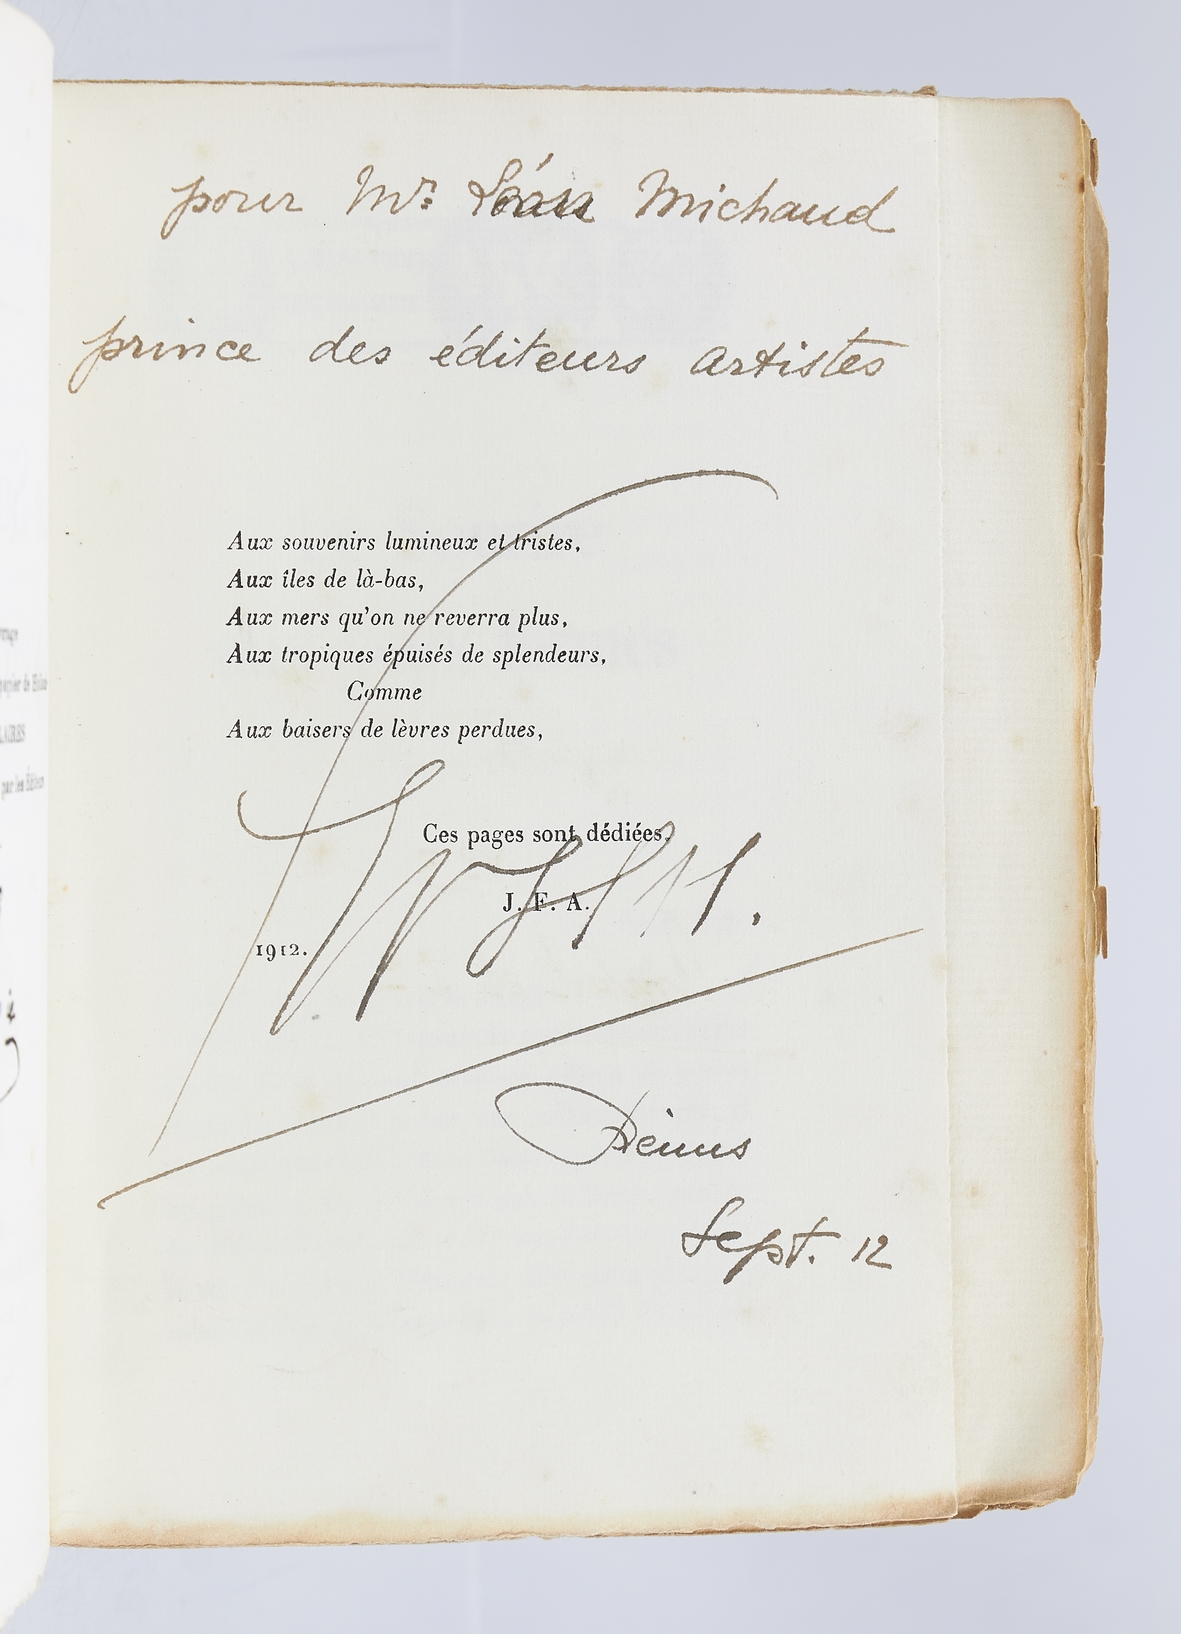 pour Mr. Michaud
prince des éditeurs artistes
Aux souvenirs lumineux et tristes,
Aux îles de là-bas,
Aux mers qu'on ne reverra plus,
Aux tropiques épuisés de splendeurs,
Comme
Aux baisers de lèvres perdues,
Ces pages sont dédiées.
J. F. A.
1912.
Sept. 12
papier de
par les